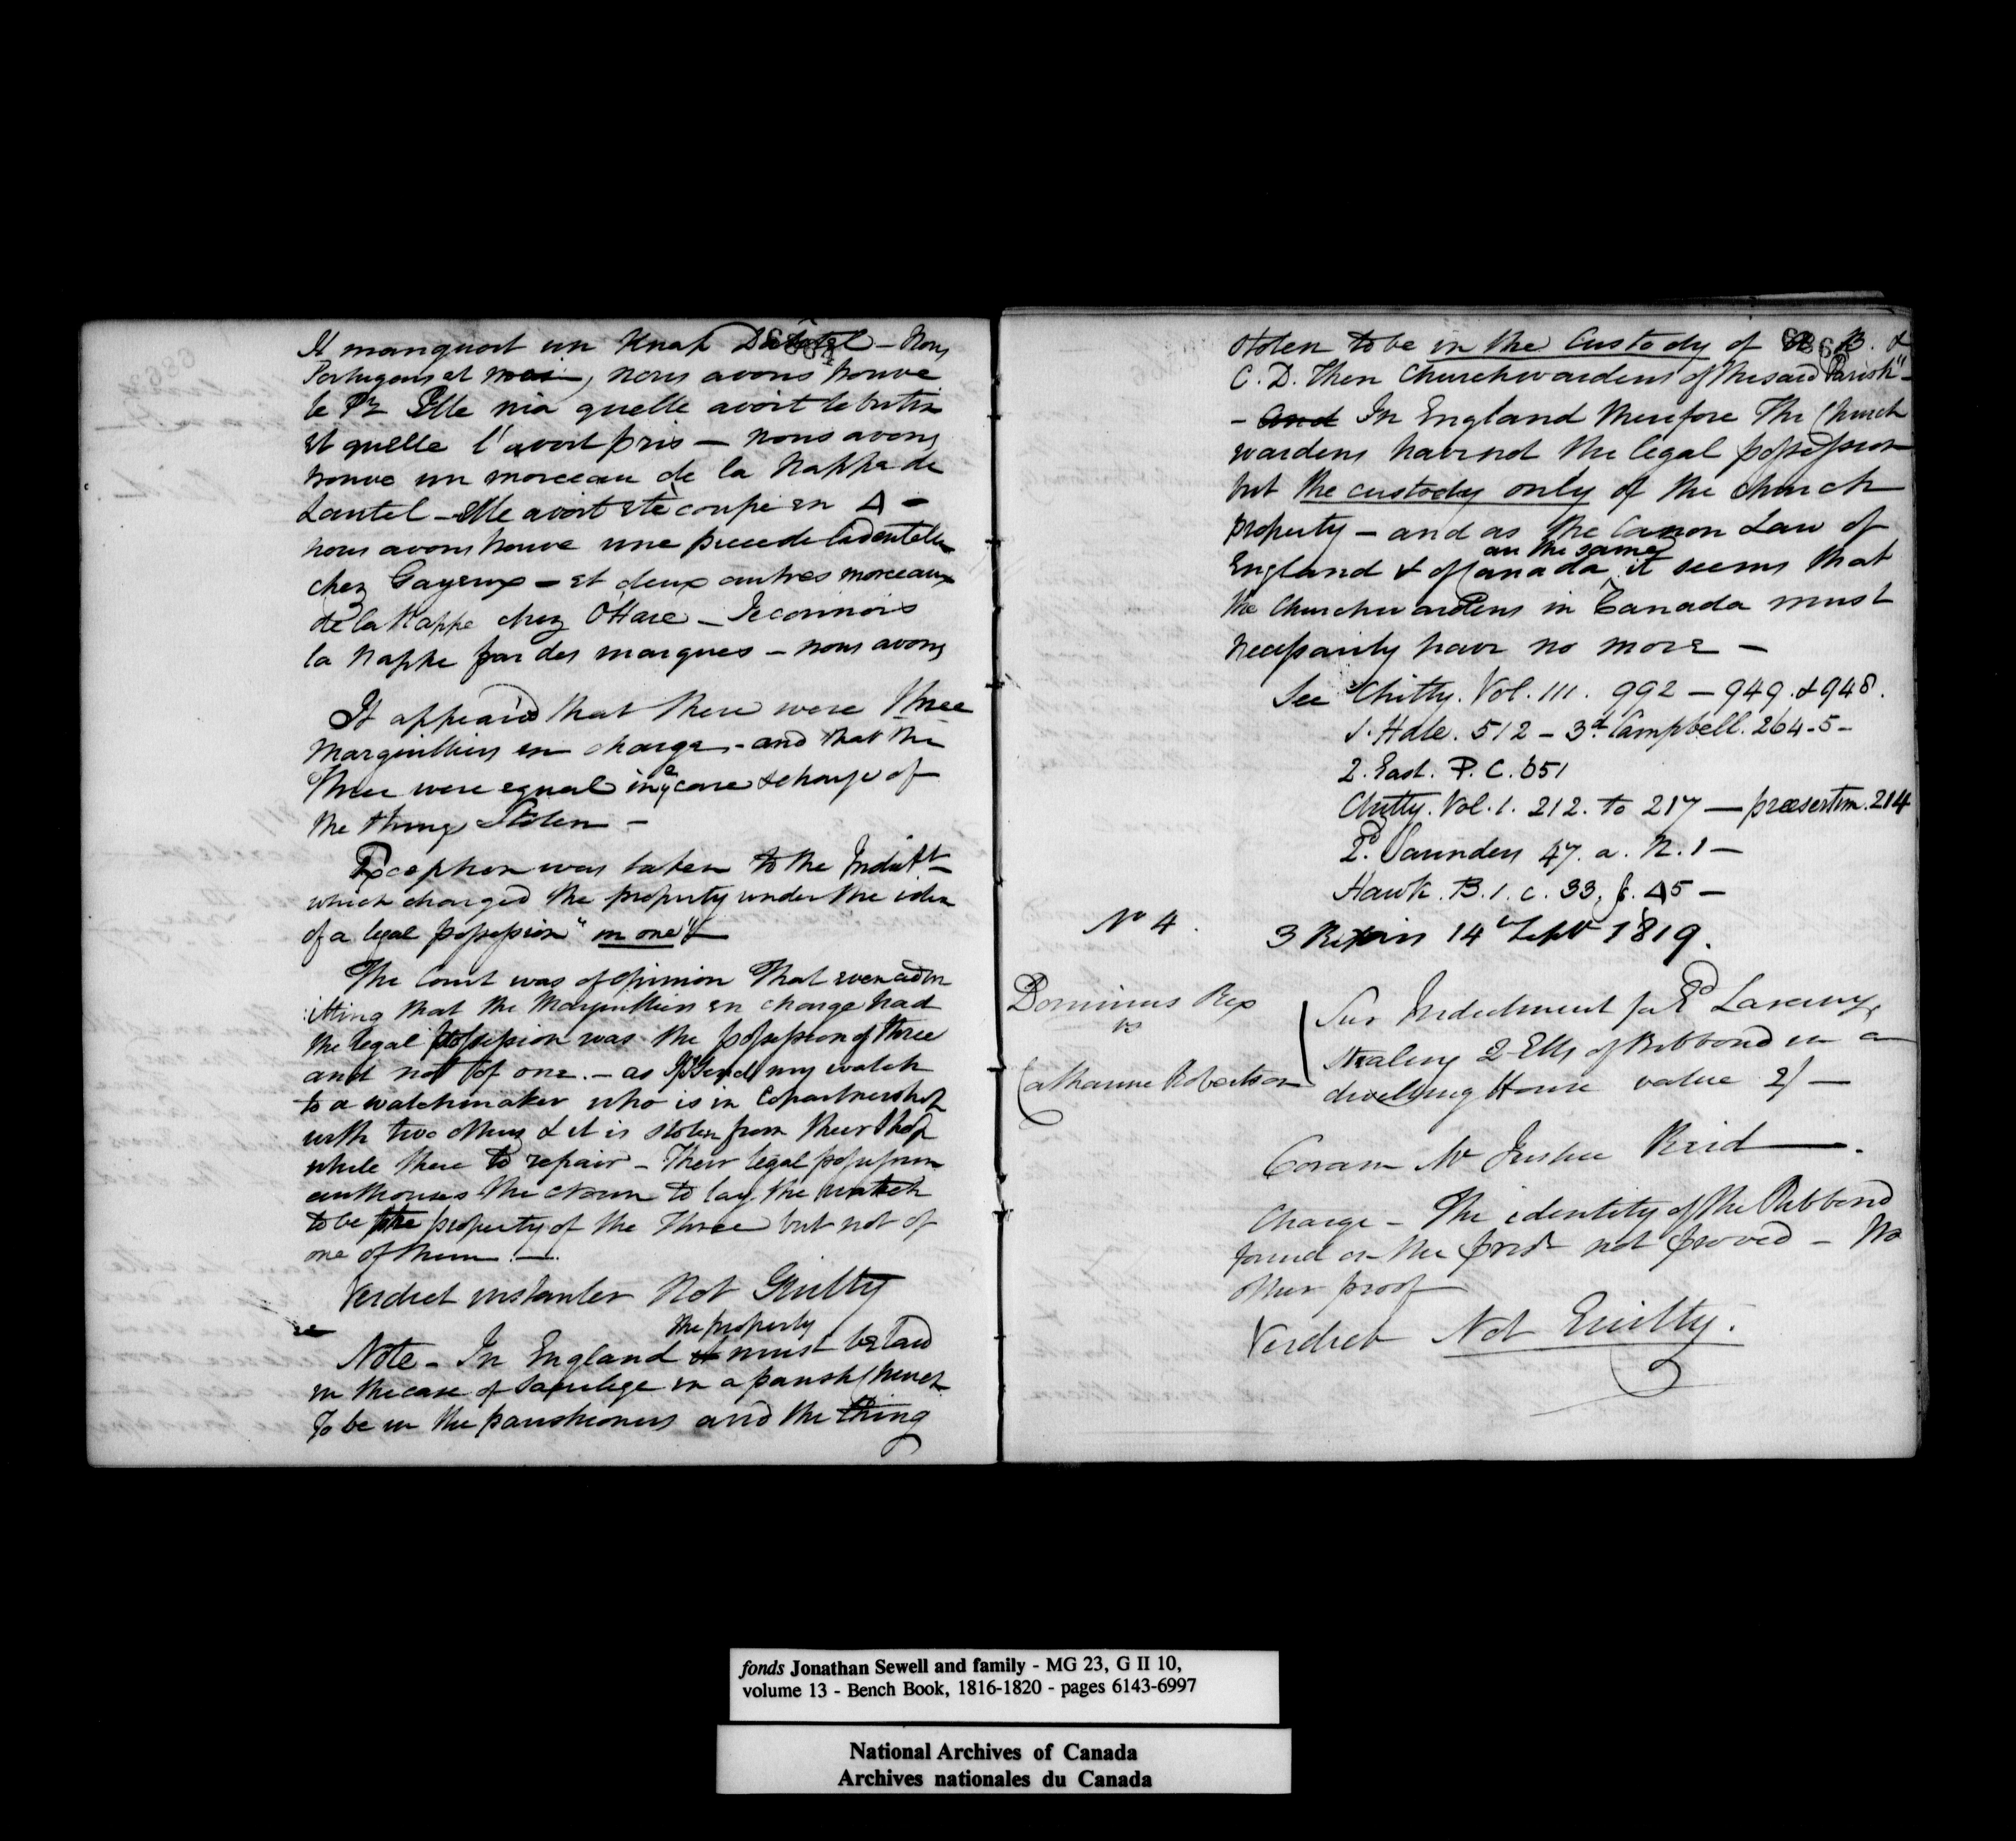 Il manquoit un Knap D'autel – Nous
Portugais et moi, nous avons trouve
le Pr Elle nia quelle avoit le butin
et quelle l'avoit pris – nous avons
trouve un morceau de la Nappe de
Lautel – elle avoit ete coupé en 4 –
nous avons trouve une piece de la dentelle
chez Gayeux – et deux autres morceaux
de la Nappe chez O'Hare – Je connois
la Nappe par des marques – nous avons
It appeared that there were Three
Marguilliers en charge – and that the
Three were equal in ye care & charge of
the things Stolen –
Exception was taken to the Indictt –
which charged the property under the idea
of a legal possession "in one" –
The Court was of opinion That even adm
:itting that the Marguilliers en charge had
the legal possession was the possession of three
and not of one. – as if I send my watch
to a watchmaker who is in Copartnership
with two others & it is stolen from their Shop
while there to repair – Their legal possession
authorises the crown to lay the watch
to be the property of the Three but not of
one of them. –
Verdict instanter Not Guilty
the property
Note – In England it must be laid
in the case of Sacrilege in a parish Church
To be in the parishioners and the thing
stolen to be in the Custody of A B. &
C. D. then Churchwardens of the said Parish" –
– and In England therefore The Church
wardens have not the legal possession
but the custody only of the church
property – and as the Canon Law of
are the same
England & of Canada it seems that
the Churchwardens in Canada must
necessarily have no more –
See Chitty. Vol. III. 992 – 949. & 948.
1. Hale. 512 – 3d. Campbell. 264-5 –
2. East. P. C. 651
Chitty. Vol. 1. 212. to 217 – præsertim. 214
2d. Saunders 47. a. N. 1 –
Hawk. B. 1. c. 33. §. 45 –
No 4.
14th Septr 1819.
Dominus Rex
vs
Catharine Robertson
Sur Indictment for Gd Larceny
stealing 2 Ells of Ribbond in a
dwelling House value 2/ –
Coram Mr Justice Reid –.
Charge – The identity of the Ribbond
found on the prisr not proved – No
other proof
Verdict Not Guilty.
fonds Jonathan Sewell and family - MG 23, G II 10,
volume 13 - Bench Book, 1816-1820 - pages 6143-6997
National Archives of Canada
Archives nationales du Canada